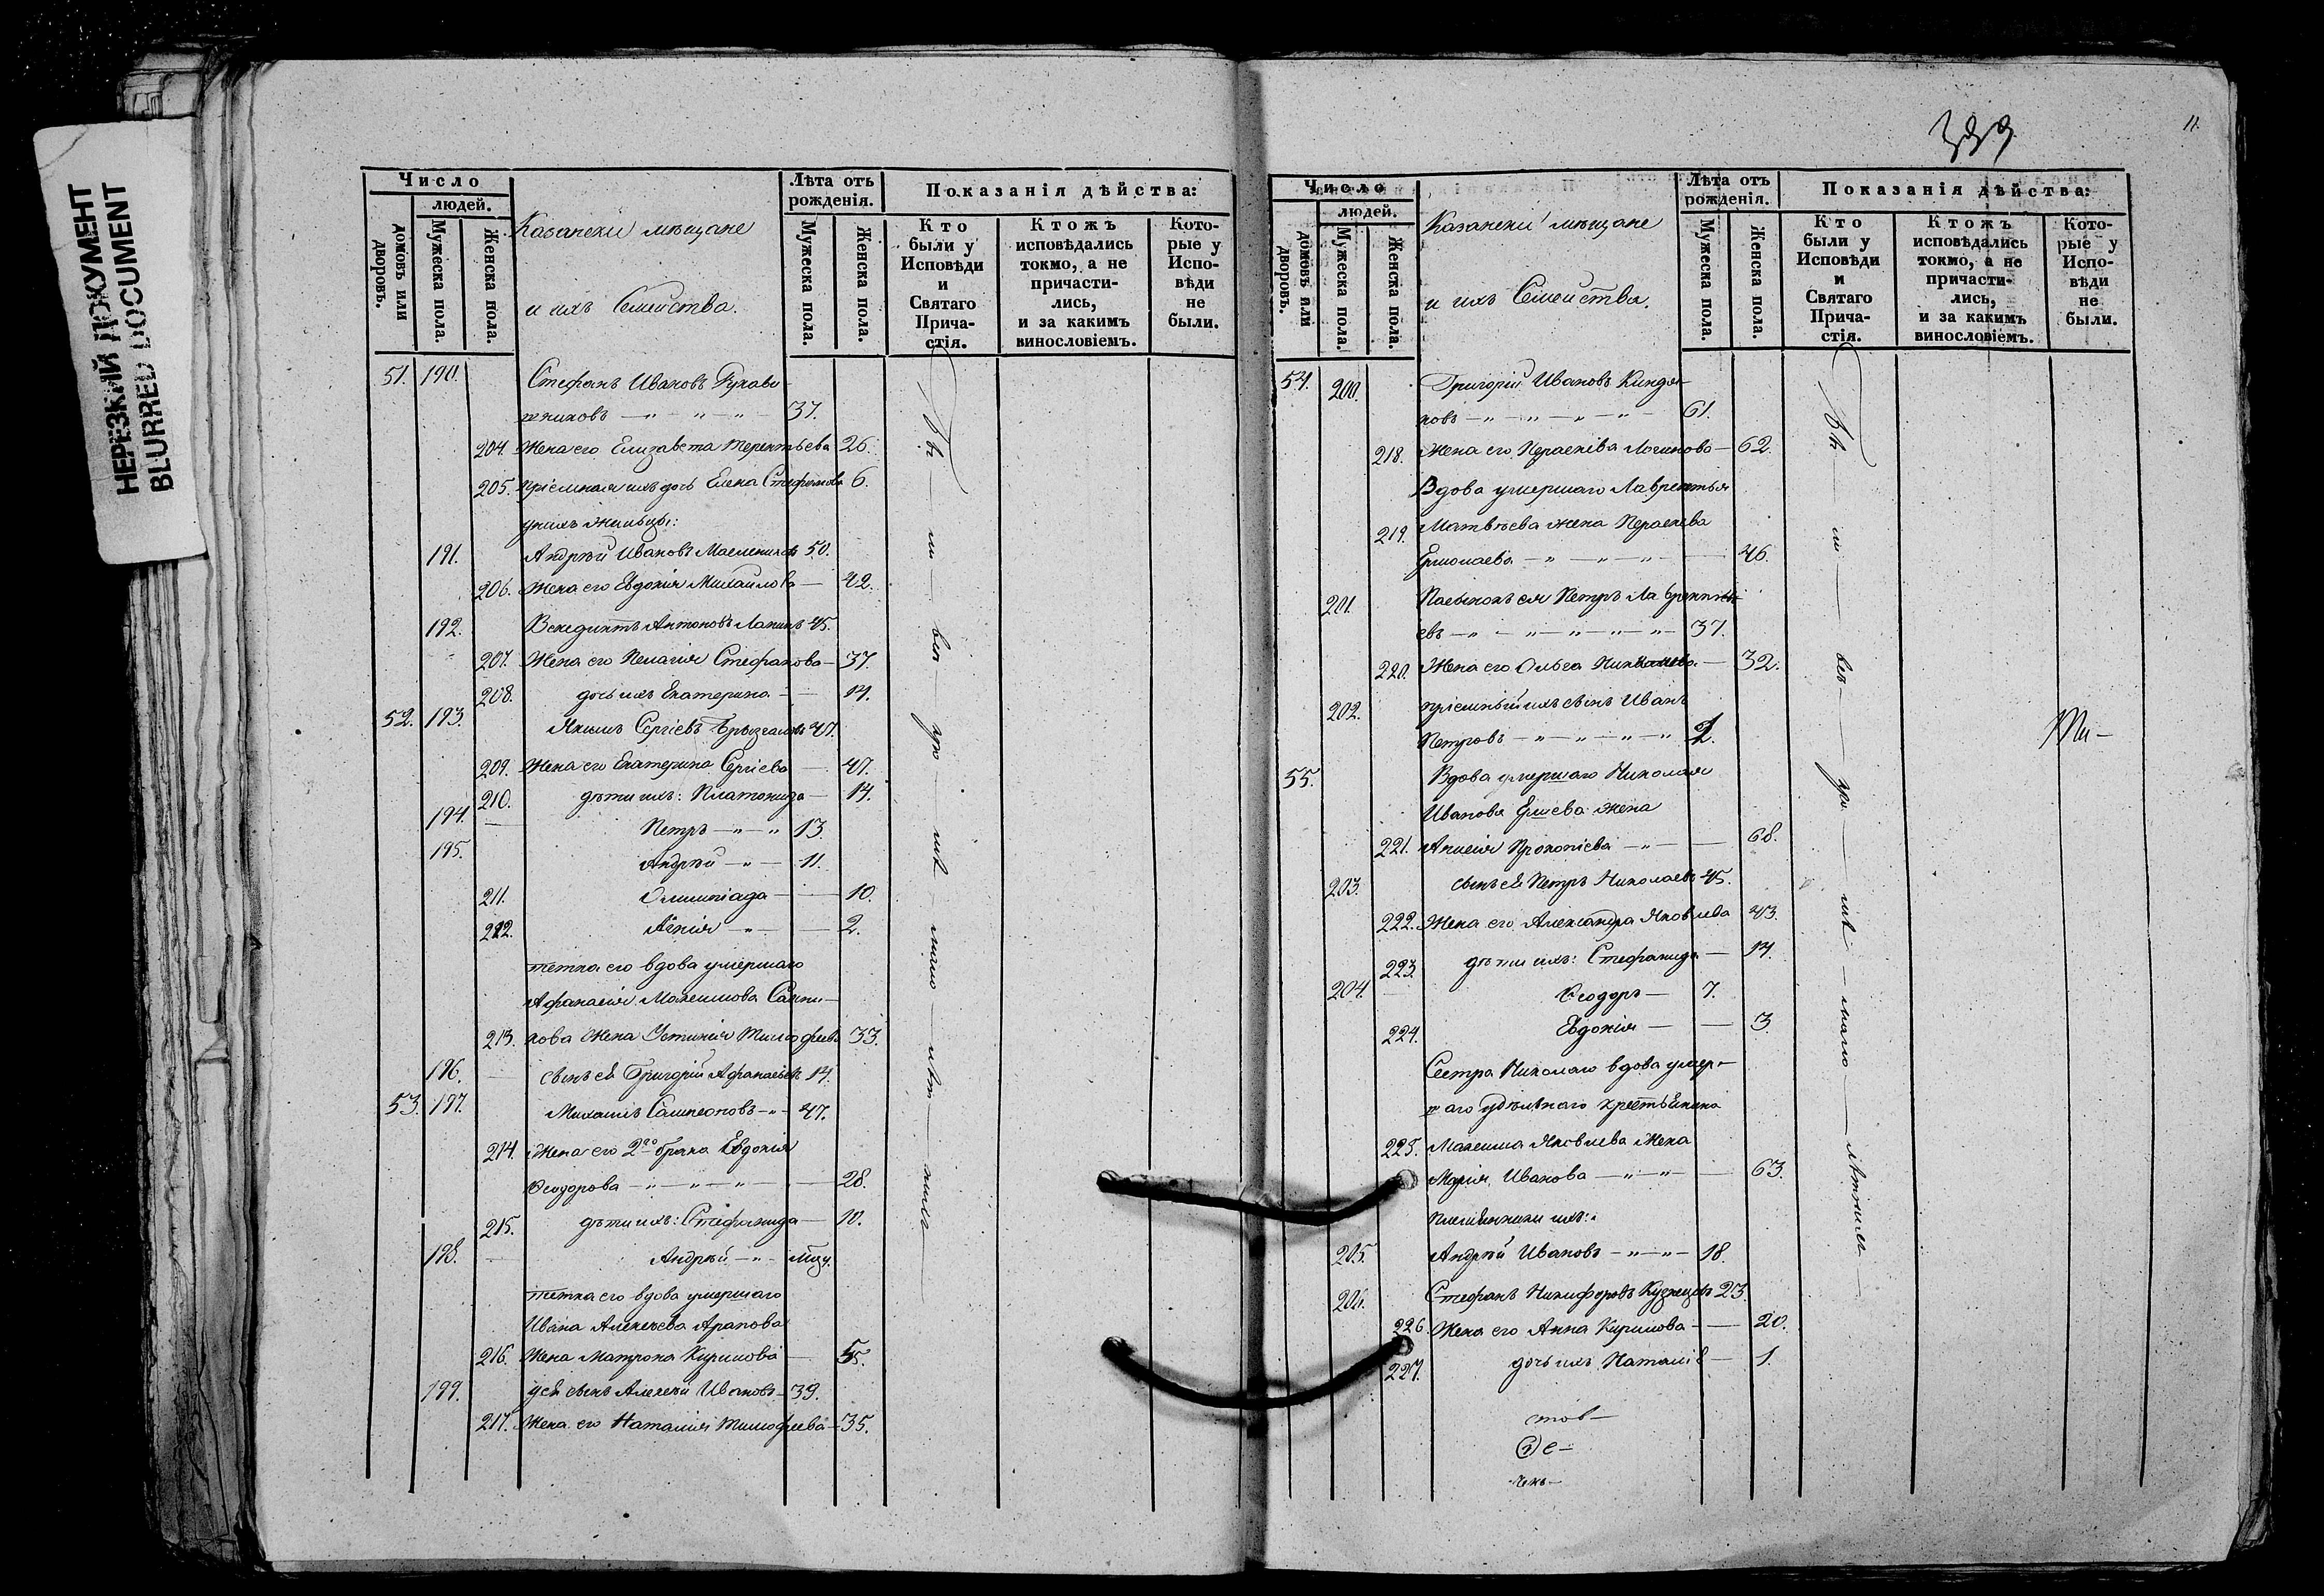 НЕРЕЗКИЙ ДОКУМЕНТ
BLURRED DOCUMENT
Число
людей.
домовъ или дворовъ.
Мужеска пола.
Женска пола.
Казанскіи мѣщане
и ихъ Семейства.
Лѣта отъ рожденія.
Мужеска пола.
Женска пола.
Показанія дѣйства:
Кто были у Исповѣди и Святаго Причастія.
Ктожъ исповѣдались токмо, а не причастились, и за какимъ винословіемъ.
Которые у Исповѣди не были.
51. 190. Стефанъ Ивановъ Рукави-
шниковъ — " — " — " — 37.
204. Жена его Елизавета Терентьева 26.
205. пріемная ихъ дочь Елена Стефанова 6.
у нихъ жильцы:
191. Андрей Ивановъ Маслениковъ 50.
206. Жена его Евдокія Михаилова — 42.
192. Венедиктъ Антоновъ Лапинъ 45.
207. Жена его Пелагія Стефанова — 37.
208. дочь ихъ Екатерина — 14.
52. 193. Якимъ Сергіевъ 47.
209. Жена его Екатерина Сергіева — 47.
210. дѣти ихъ: Платонида — 14.
194. — Петръ — " — " 13.
195. Андрей — " — 11.
211. Олимпіада — 10.
212. Агнія — " — 2.
тетка его вдова умершаго
Афанасія Максимова
213. кова Жена Устинія Тимофеева 33.
196. — сынъ ея Григорій Афанасьевъ 14.
53. 197. Михаилъ Сампсоновъ — " — 47.
214. Жена его 2го брака Евдокія
Ѳеодорова — " — " — " — 28.
215. дѣти ихъ: Стефанида — 10.
198. — Андрей — " —
тетка его вдова умершаго
Ивана Алексѣева Арапова
216. Жена Матрона Кирилова — 55.
199. у ей сынъ Алексѣй Ивановъ — 39.
217. Жена его Наталія Тимофеева — 35.
399
11.
Число
людей.
домовъ или дворовъ.
Мужеска пола.
Женска пола.
Казанскіи мѣщане
и ихъ Семейства.
Лѣта отъ рожденія.
Мужеска пола.
Женска пола.
Показанія дѣйства:
Кто были у Исповѣди и Святаго Причастія.
Ктожъ исповѣдались токмо, а не причастились, и за какимъ винословіемъ.
Которые у Исповѣди не были.
54. 200. Григорій Ивановъ Киндя-
ковъ — " — " — " — " — 61.
218. Жена его Параскева Логинова — 62.
Вдова умершаго Лаврентья
219. Матвѣева жена Параскева
Ермолаева — " — " — " — 46.
201. Пасынокъ ея Петръ Лаврентьи-
евъ — " — " — " — " — " — 37.
220. Жена его Ольга — 32.
202. пріемный ихъ сынъ Иванъ
Петровъ — " — " — " — "
55. Вдова умершаго Николая
Иванова жена
221. Анисія Прокопіева — " — 68.
203. сынъ ея Петръ Николаевъ 45.
222. Жена его Александра Яковлева 43.
223. дѣти ихъ: Стефанида — 14.
204. — Ѳеодоръ — 7.
224. Евдокія — 3.
Сестра Николаю вдова умер-
шаго удѣльнаго крестьянина
225. Максима Яковлева Жена
Марія Иванова — " — " — 63.
Племянники ихъ:
205. Андрей Ивановъ — " — " — 18.
206. Стефанъ Никифоровъ Кузнецовъ 23.
226. Жена его Анна Кирилова — 20.
227. дочь ихъ Наталія — 1.